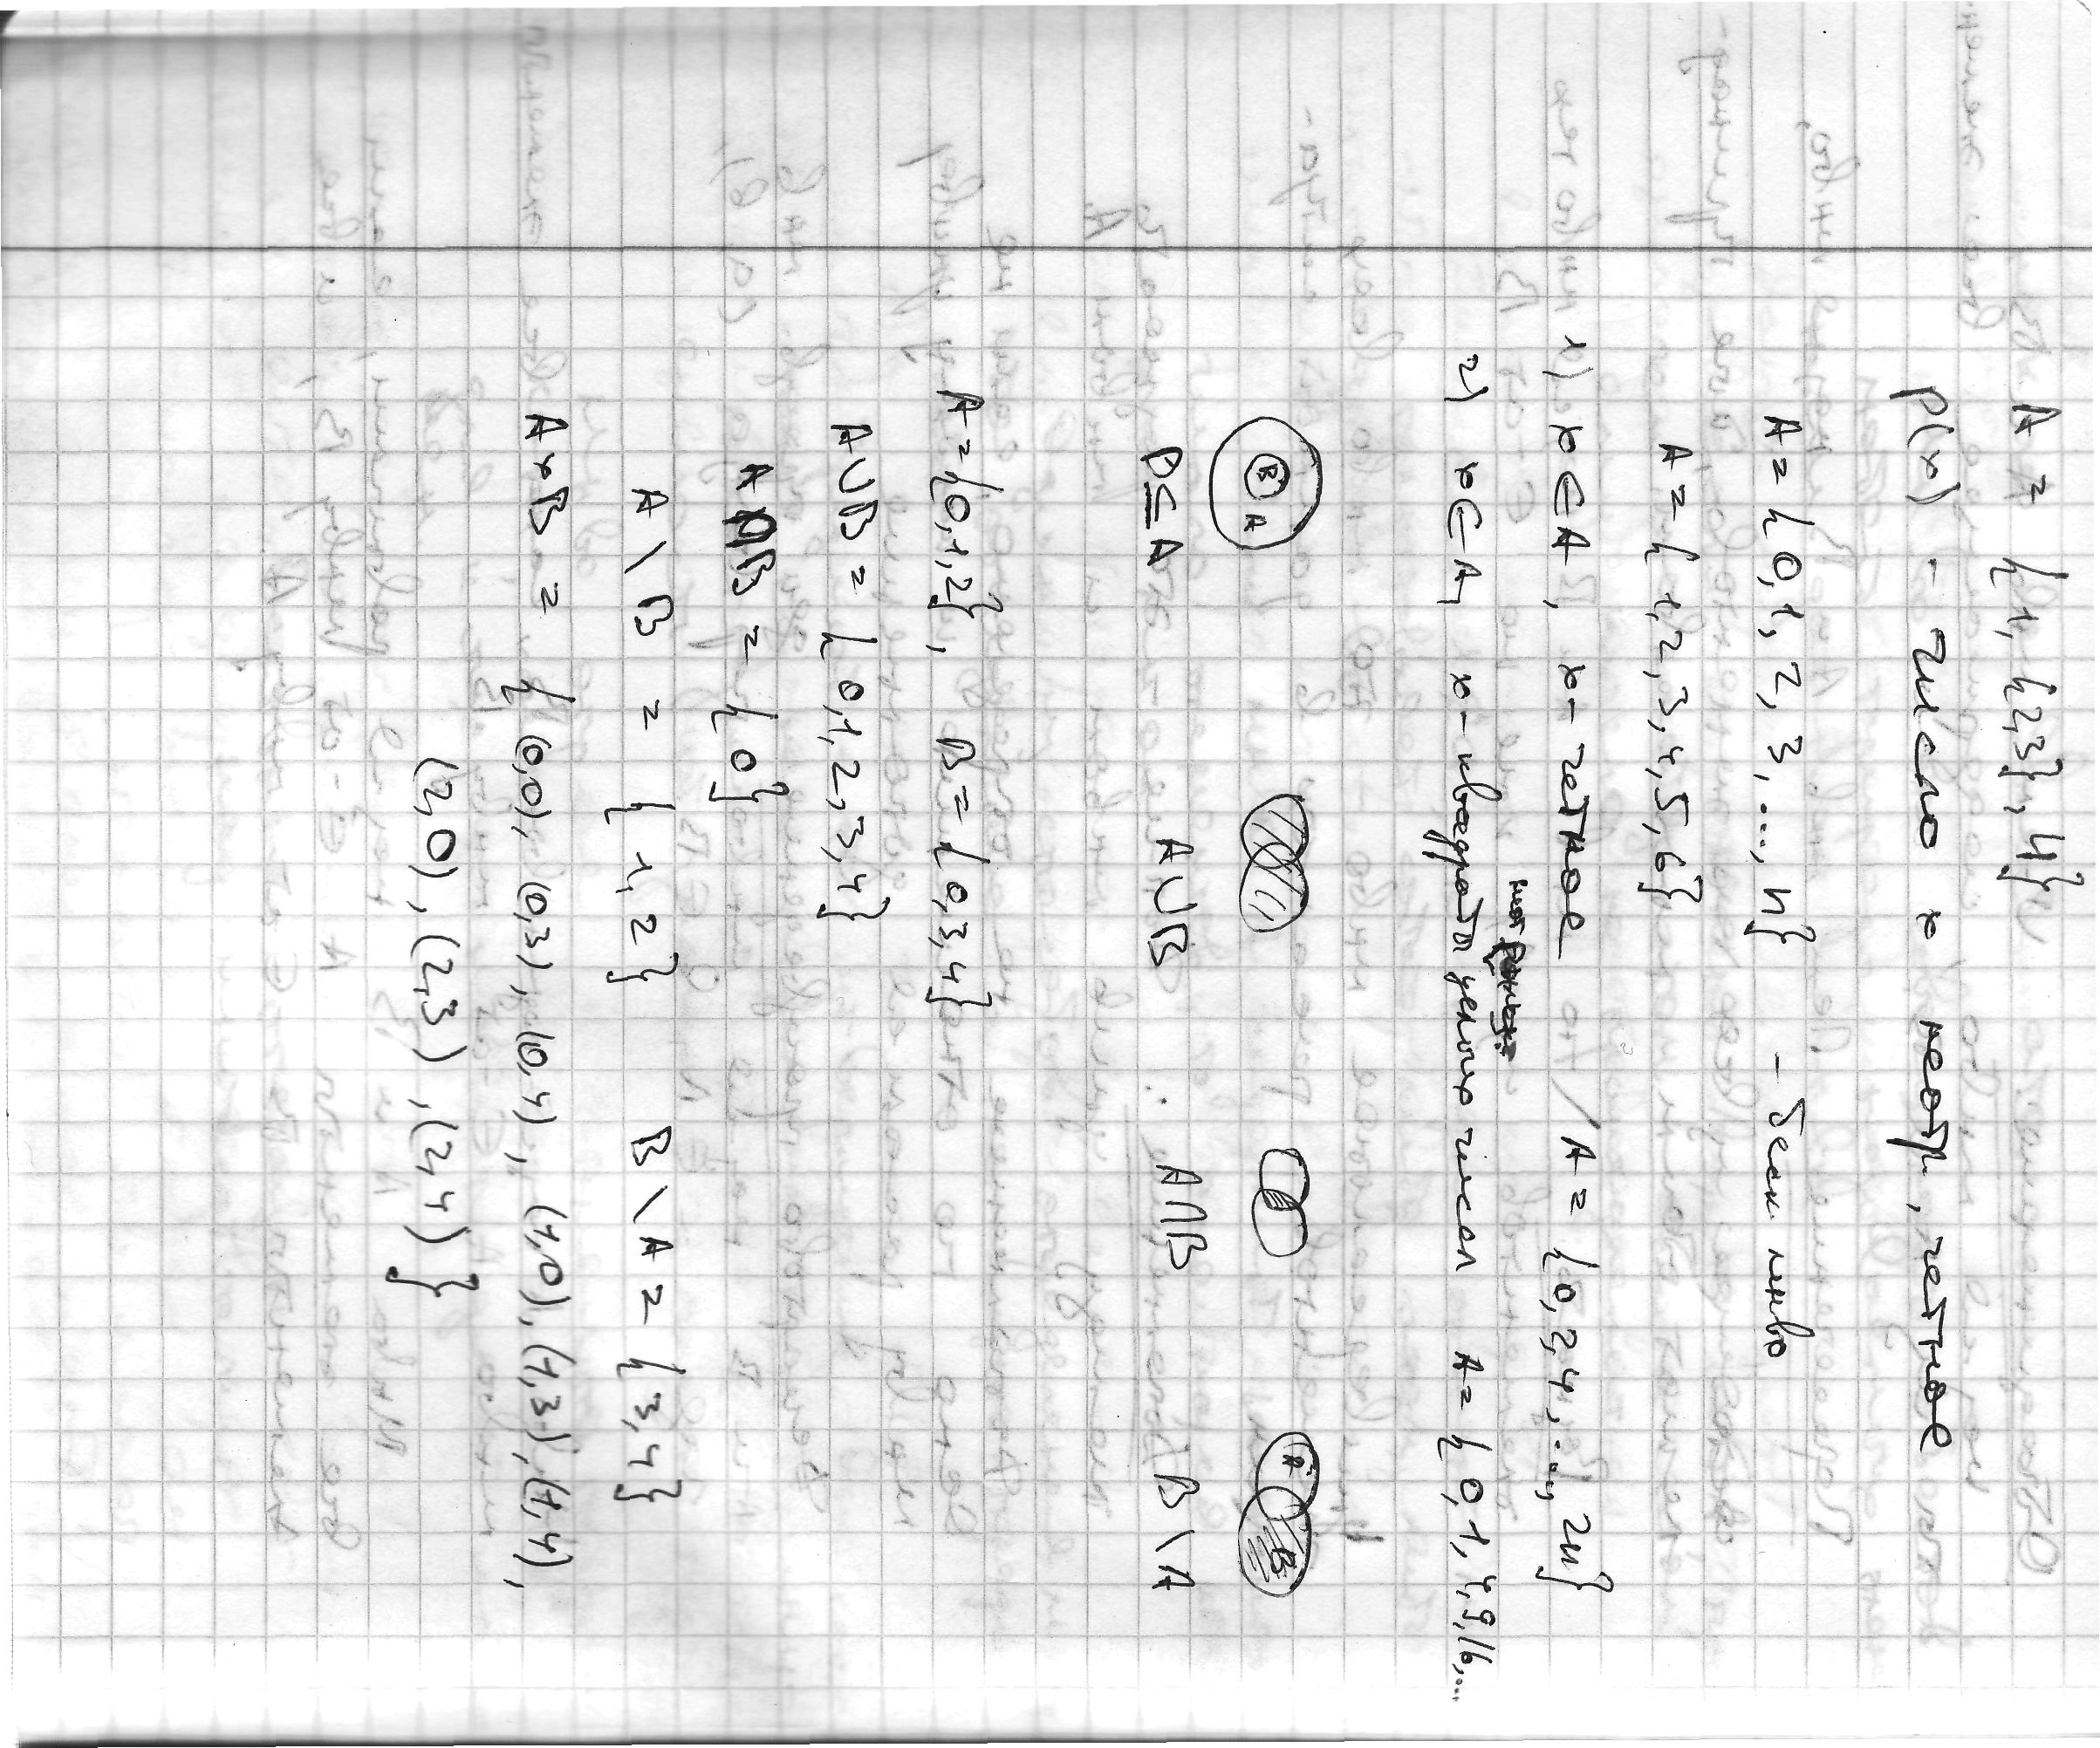 A = {1, {2,3}, 4}
P(x) - число x неотр., четное
A = {0, 1, 2, 3, ..., n} - беск. мн-во
A = {1, 2, 3, 4, 5, 6}
1) x ∈ A, x - четное / A = {0, 2, 4, ..., 2n}
2) x ∈ A, x - квадраты целых чисел A = {0, 1, 4, 9, 16, ...
B A
A B
B ⊆ A A ∪ B A ∩ B B \ A
A = {0,1,2}, B = {0,3,4}
A ∪ B = {0,1,2,3,4}
A ∩ B = {0}
A \ B = {1, 2} B \ A = {3,4}
A × B = {(0,0), (0,3), (0,4), (1,0), (1,3), (1,4),
(2,0), (2,3), (2,4)}